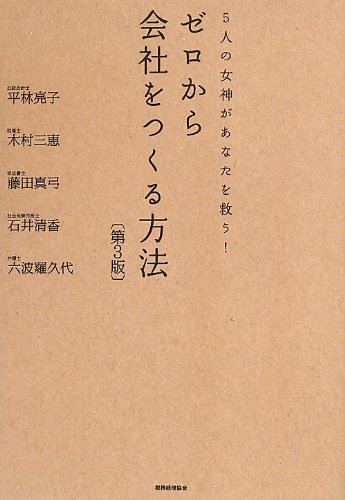 5人の女神があなたを救う!
ゼロから
会社をつくる方法
〔第3版〕
公認会計士
平林亮子
税理士
木村三恵
司法書士
藤田真弓
社会保険労務士
石井清香
弁護士
六波羅久代
税務経理協会